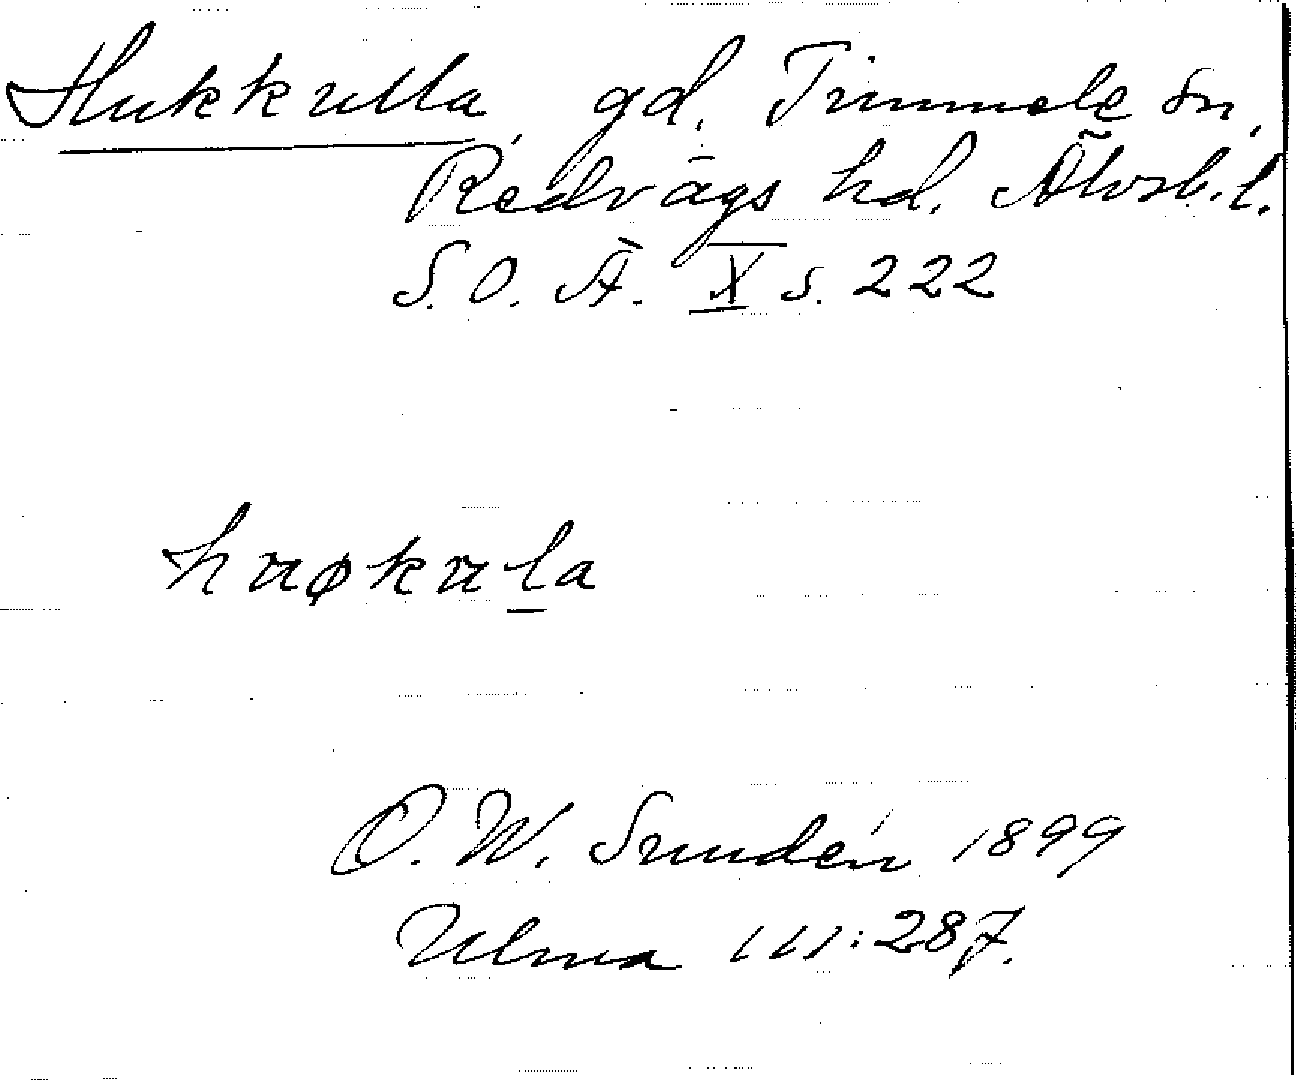 Hukkulla, gd, Timmele sn,
Redvägs hd. Älvsb. l.
S. O. Ä. X s. 222
O. W. Sundén 1899
Ulma 111:287.